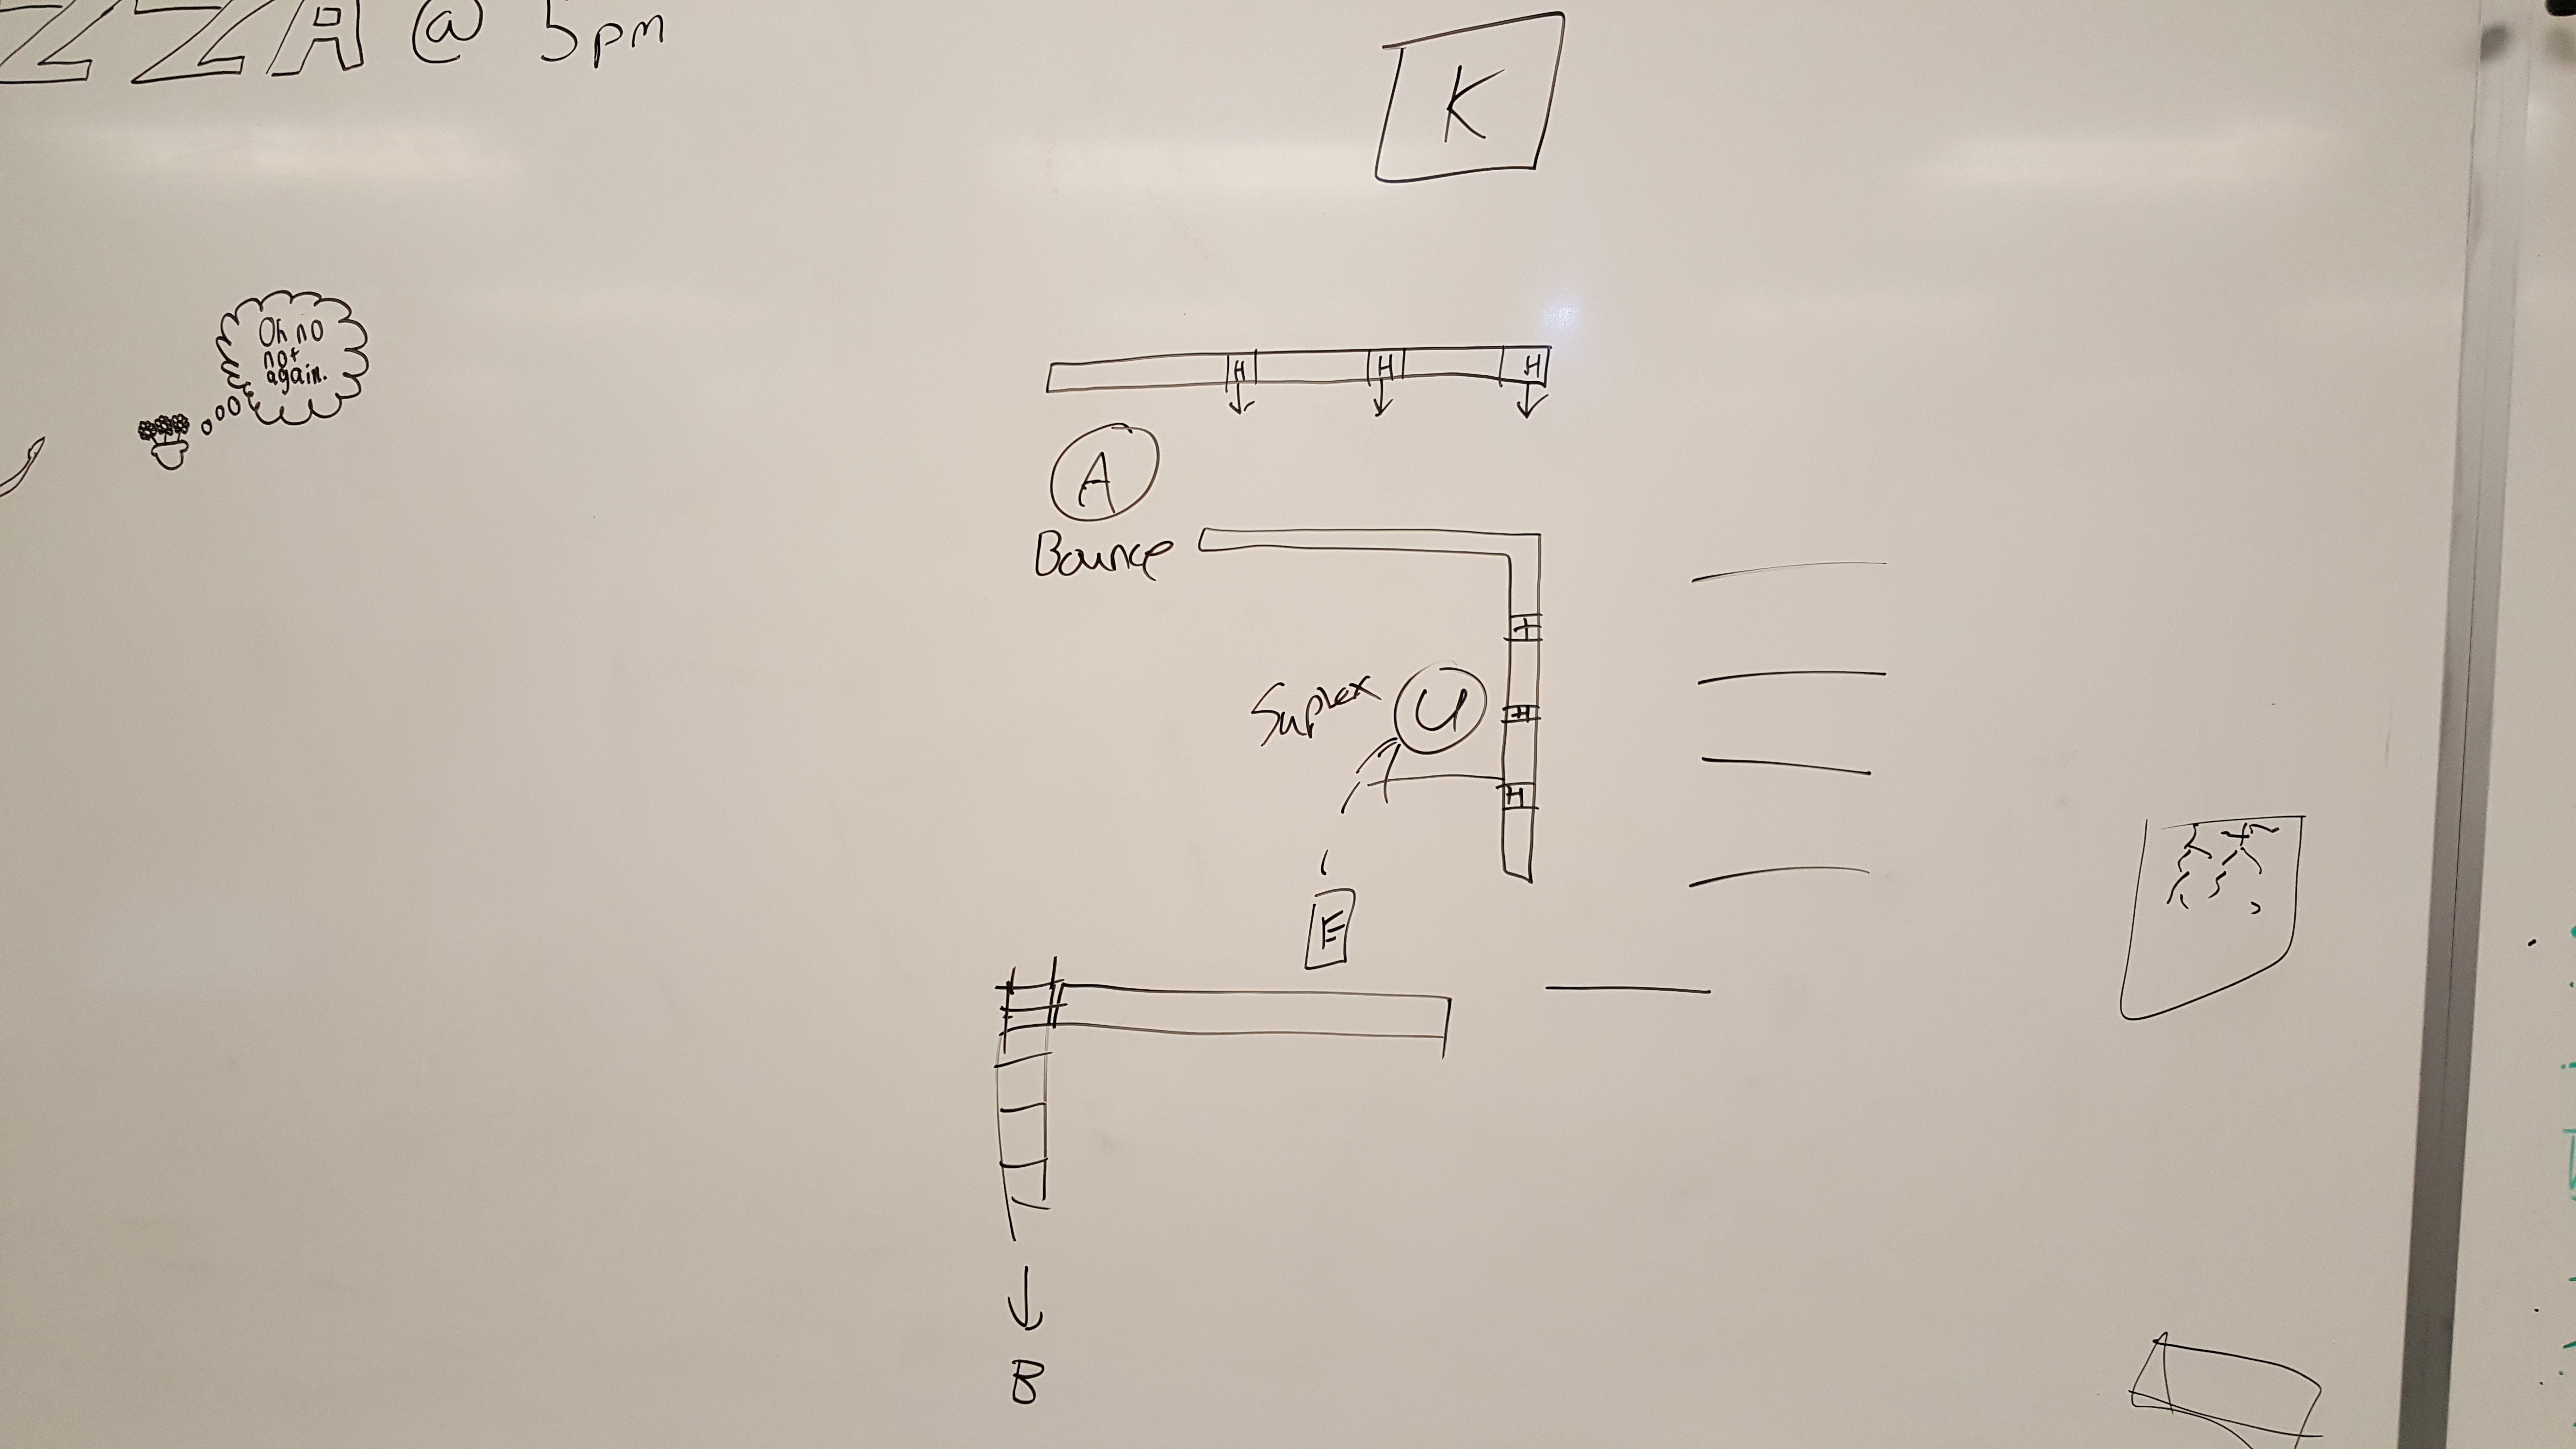 ZZA @ 5pm
K
Oh no
not
again.
H H H
A
Bounce
H
Suplex
U
H
H
E
B